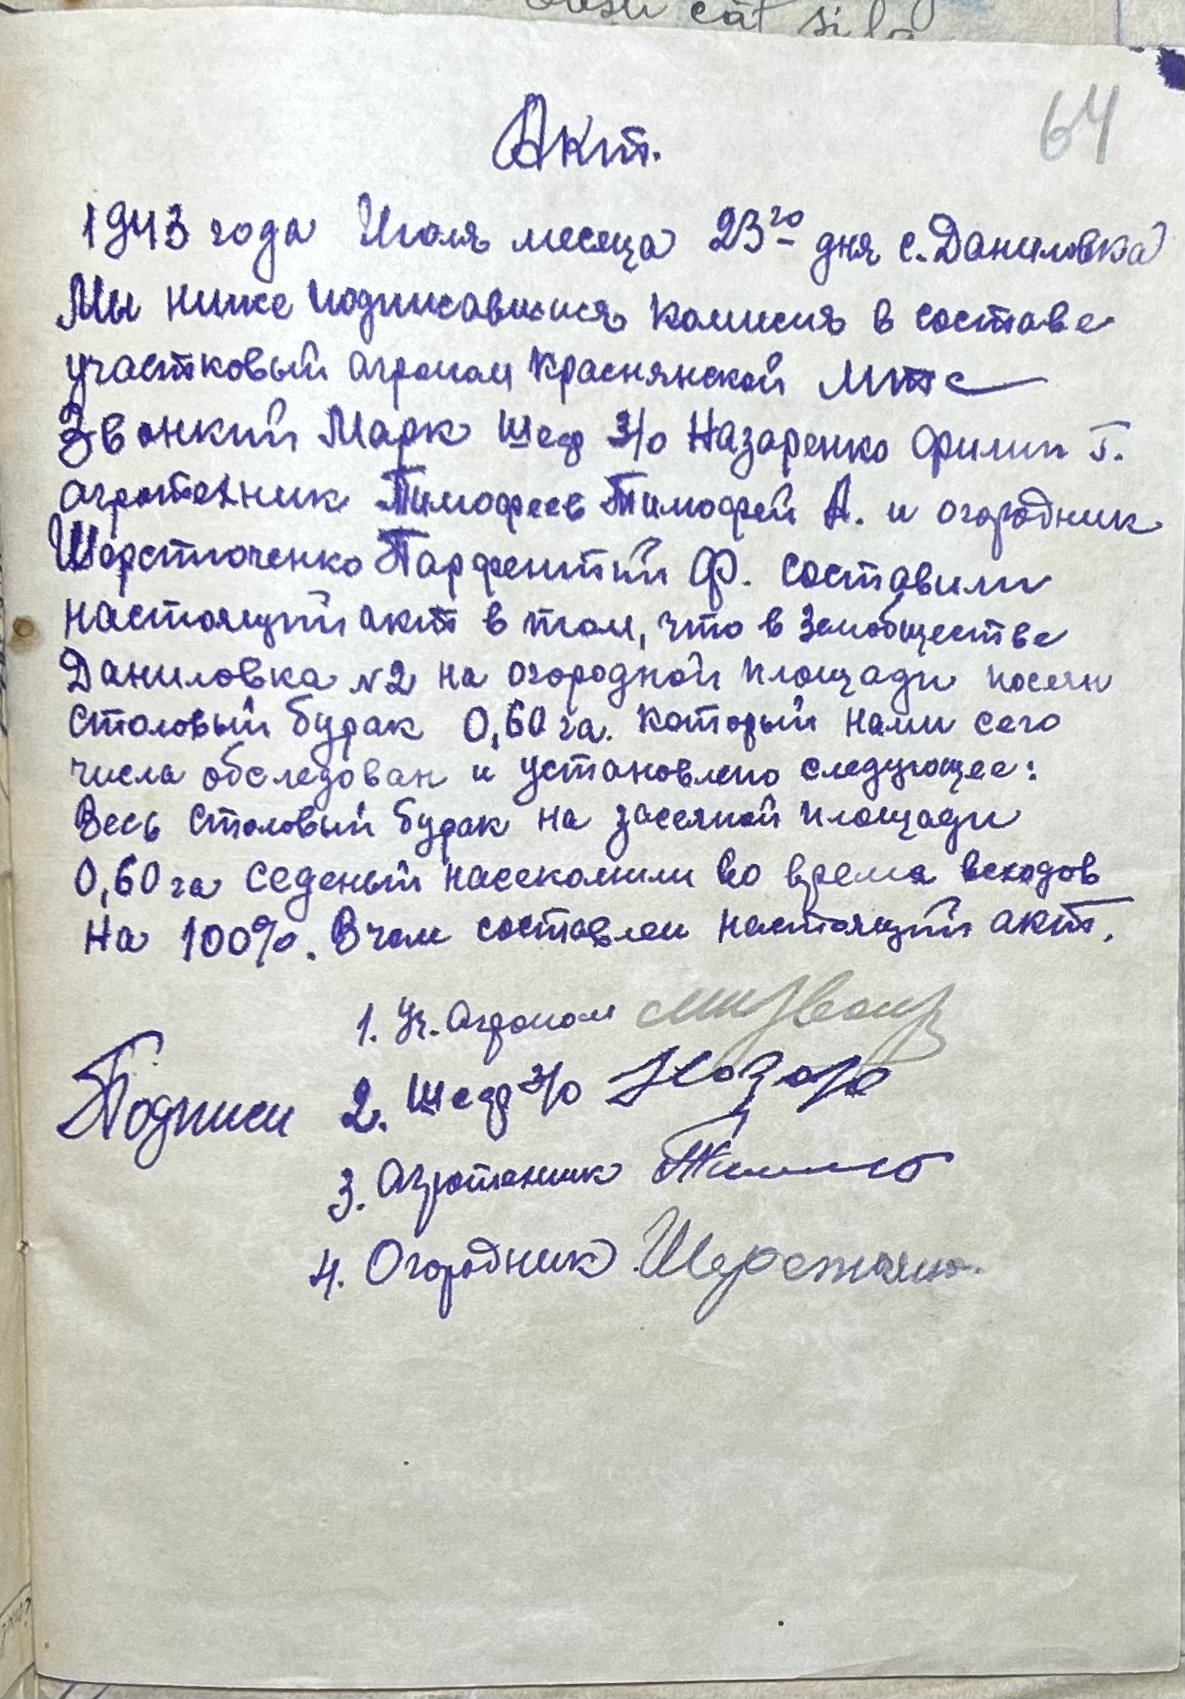 64
Акт.
1943 года Июля месяца 23го дня с. Даниловка
Мы ниже подписавшися комисия в составе
участковый агроном Краснянской МТС
Звонкий Марк Шеф З/о Назаренко Филип Г.
агротехник Тимофеев Тимофей А. и огородник
Шерстюченко Парфентий Ф. составили
настоящий акт в том, что в Земобществе
Даниловка N2 на огородной площади посеян
столовый бурак 0,60 га. который нами сего
числа обследован и установлено следующее:
Весь столовый бурак на засеяной площади
0,60 га седеный насекомими во время всходов
на 100%. В чом составлен настоящий акт.
1. Уч. Агроном
Подписи 2. Шеф З/о Назаре
3. Агротехник
4. Огородник